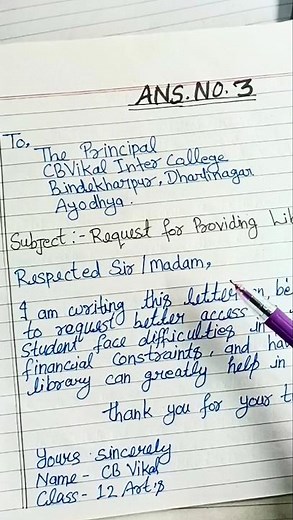 ANS.NO.3
To,
The Principal
CBVikal Inter College
Bindekharpur, Dharinagar
Ayodhya.
Subject :- Request for Providing Lib
Respected Sir/Madam,
I am writing this letter on be
to request better access
Student face difficulties in
financial Constraints, and hav
library can greatly help in
thank you for your t
Yours sincerely
Name - CB Vikal
Class - 12 Art's